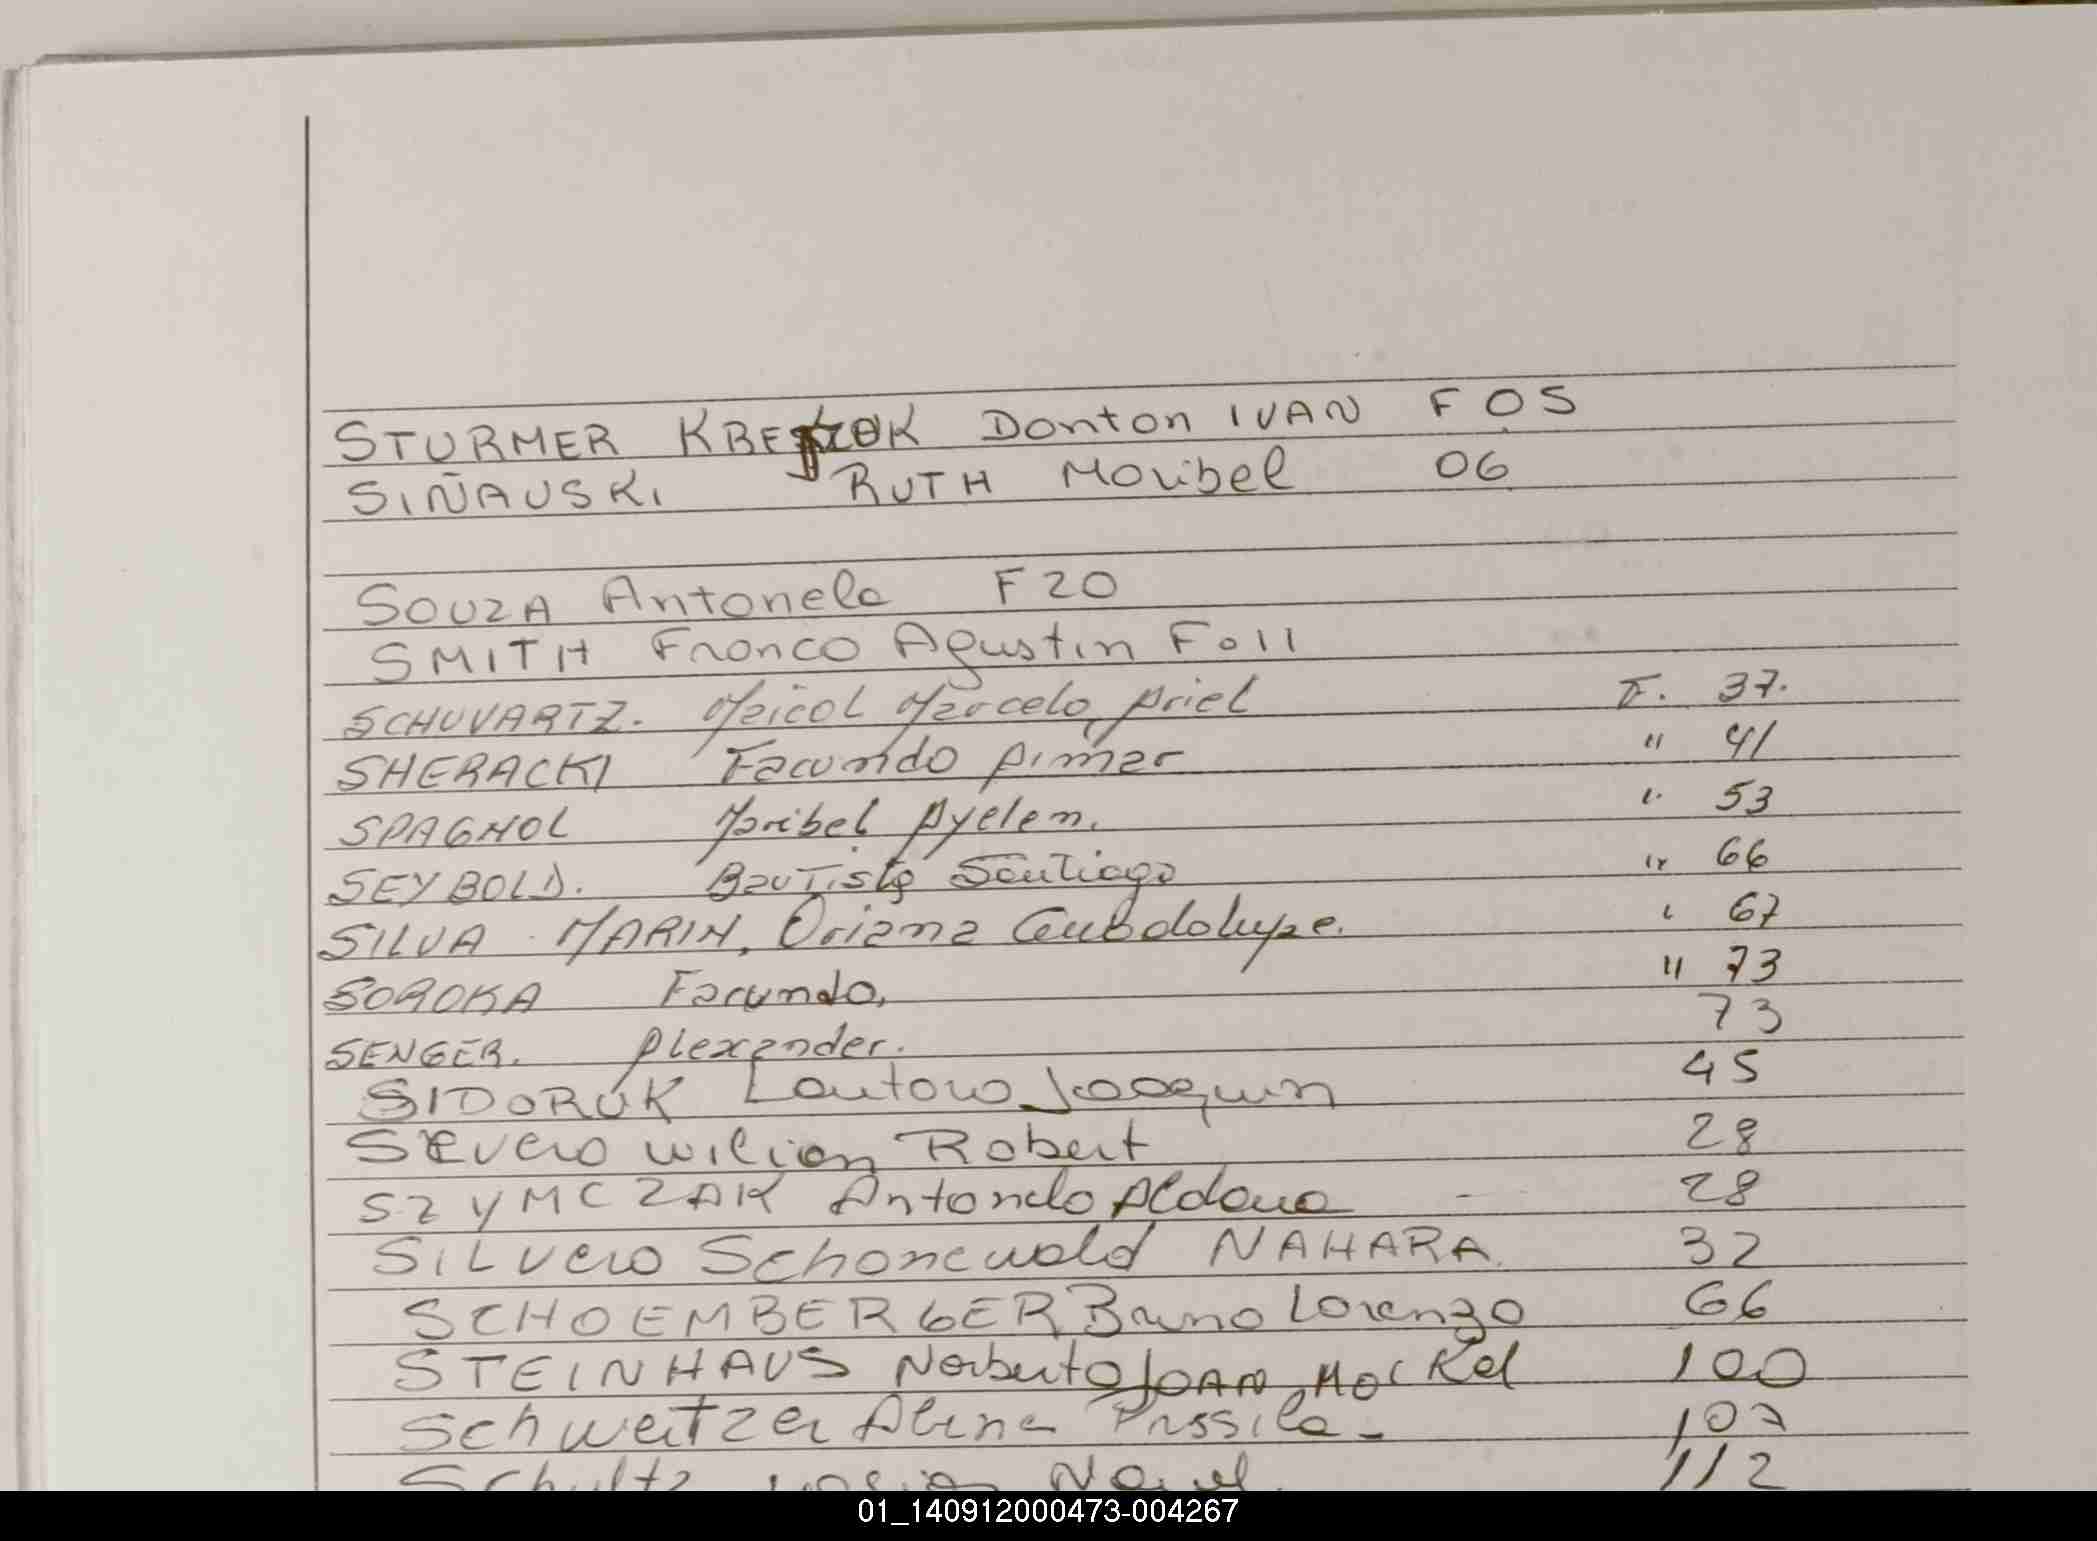 STURMER Danton IVAN F 05
SIÑAUSKI RUTH Maribel 06
SOUZA Antonela F 20
SMITH Franco Agustin Fo 11
SCHUVARTZ. Maicol Marcelo Ariel F. 37.
SHERACKI Facundo Aimar " 41
SPAGNOL Maribel Ayelen. " 53
SEYBOLD. Bautista Santiago " 66
SILVA MARIN, Oriana Guadalupe. " 67
SOROKA Facundo, " 73
SENGER. Alexander. 73
SIDORUK Lautaro Joaquin 45
Severo wilian Robert 28
SZYMCZAK Antonela Aldana - 28
SILVERO Schonewald NAHARA. 32
SCHOEMBERGER Bruno Lorenzo 66
STEINHAUS Norberto JOAN 100
Schweitzer Alina 107
Schultz Nahuel 112
01_140912000473-004267